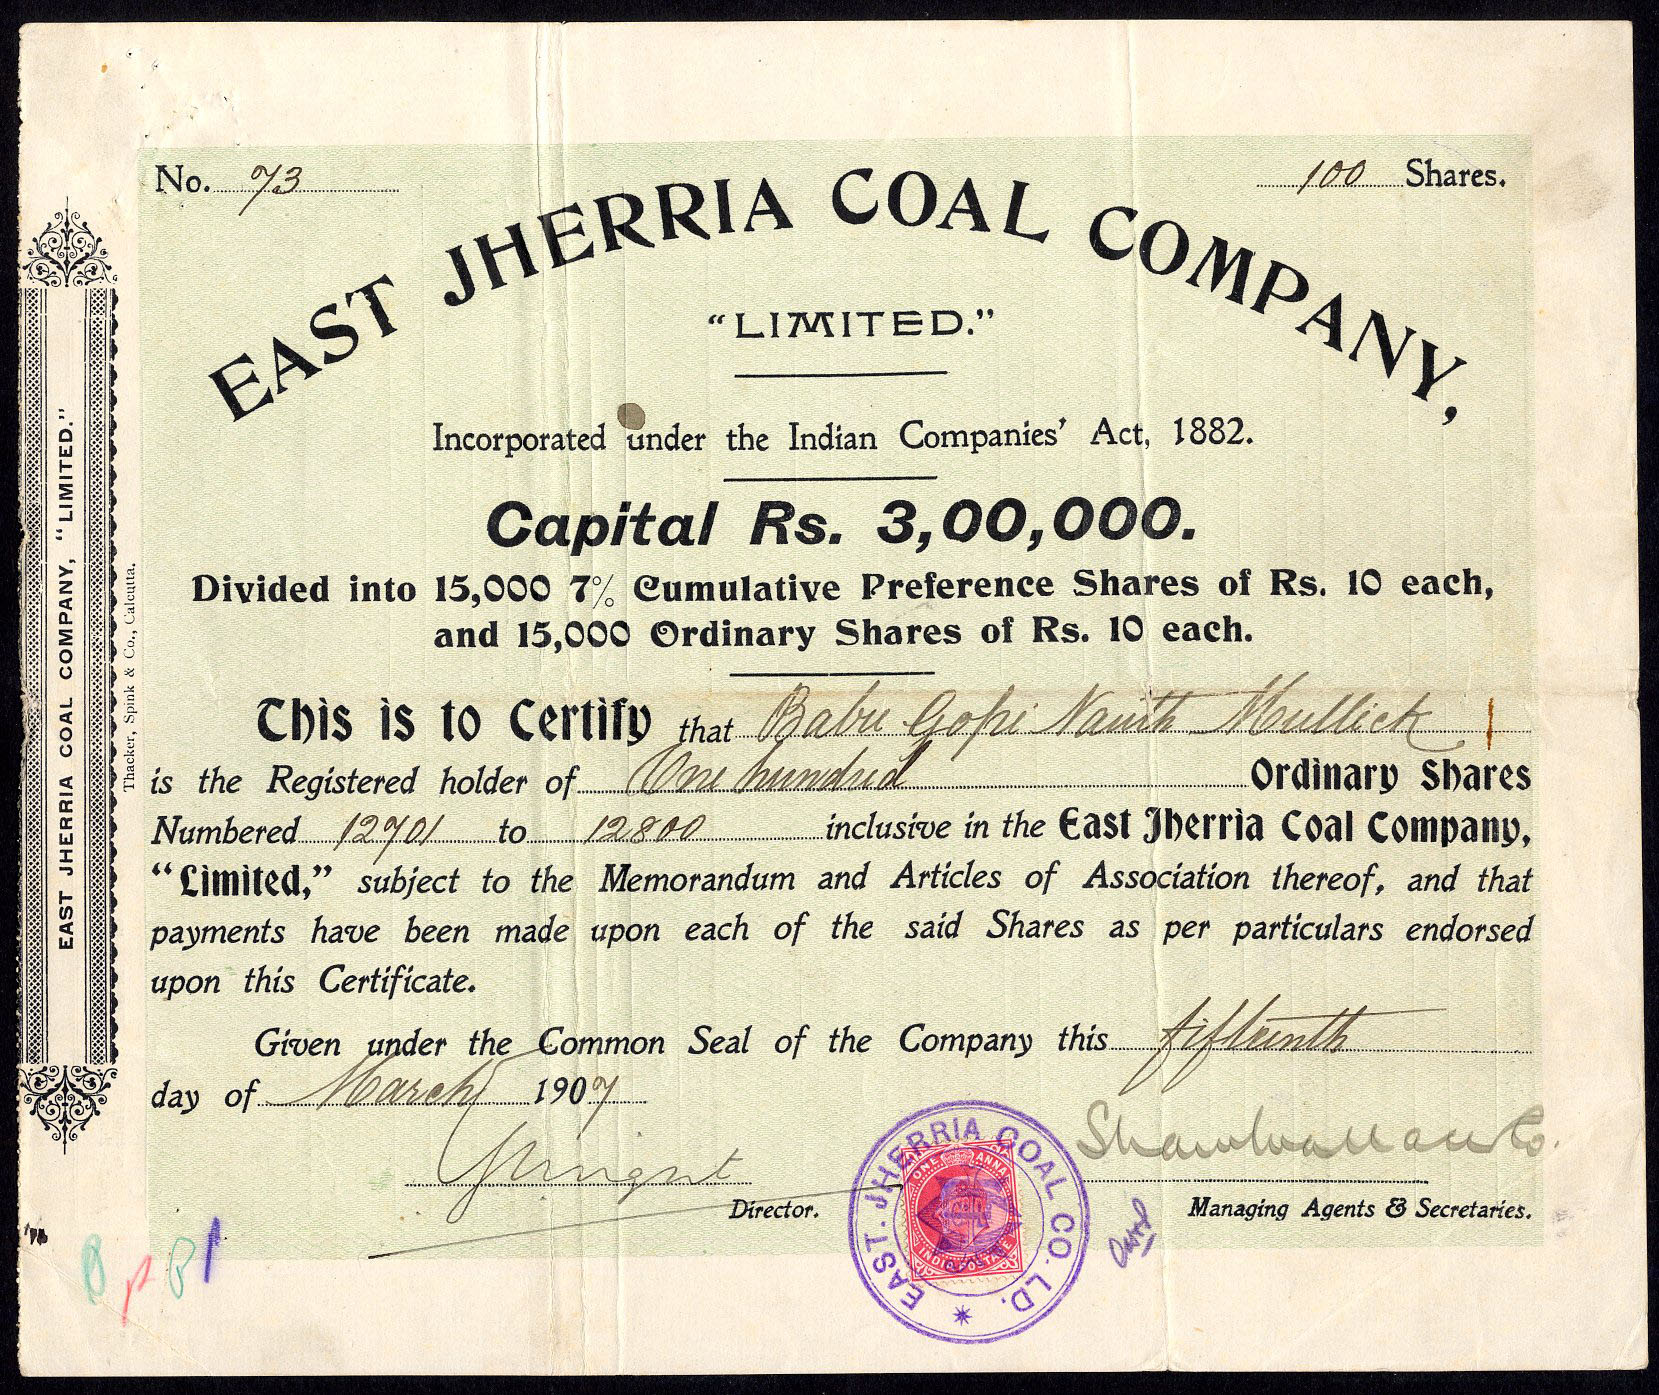 No. 73
100 Shares.
EAST JHERRIA COAL COMPANY,
“LIMITED.”
Incorporated under the Indian Companies’ Act, 1882.
Capital Rs. 3,00,000.
Divided into 15,000 7% Cumulative Preference Shares of Rs. 10 each,
and 15,000 Ordinary Shares of Rs. 10 each.
This is to Certify that Babu Gopi Nauth Mullick
is the Registered holder of One hundred Ordinary Shares
Numbered 12701 to 12800 inclusive in the East Jherria Coal Company,
“Limited,” subject to the Memorandum and Articles of Association thereof, and that
payments have been made upon each of the said Shares as per particulars endorsed
upon this Certificate.
Given under the Common Seal of the Company this fifteenth
day of March 1907
Shaw Wallace & Co.
Director.
Managing Agents & Secretaries.
EAST JHERRIA COAL CO. LD.
ONE ANNA
INDIA POSTAGE
EAST JHERRIA COAL COMPANY, “LIMITED.”
Thacker, Spink & Co., Calcutta.